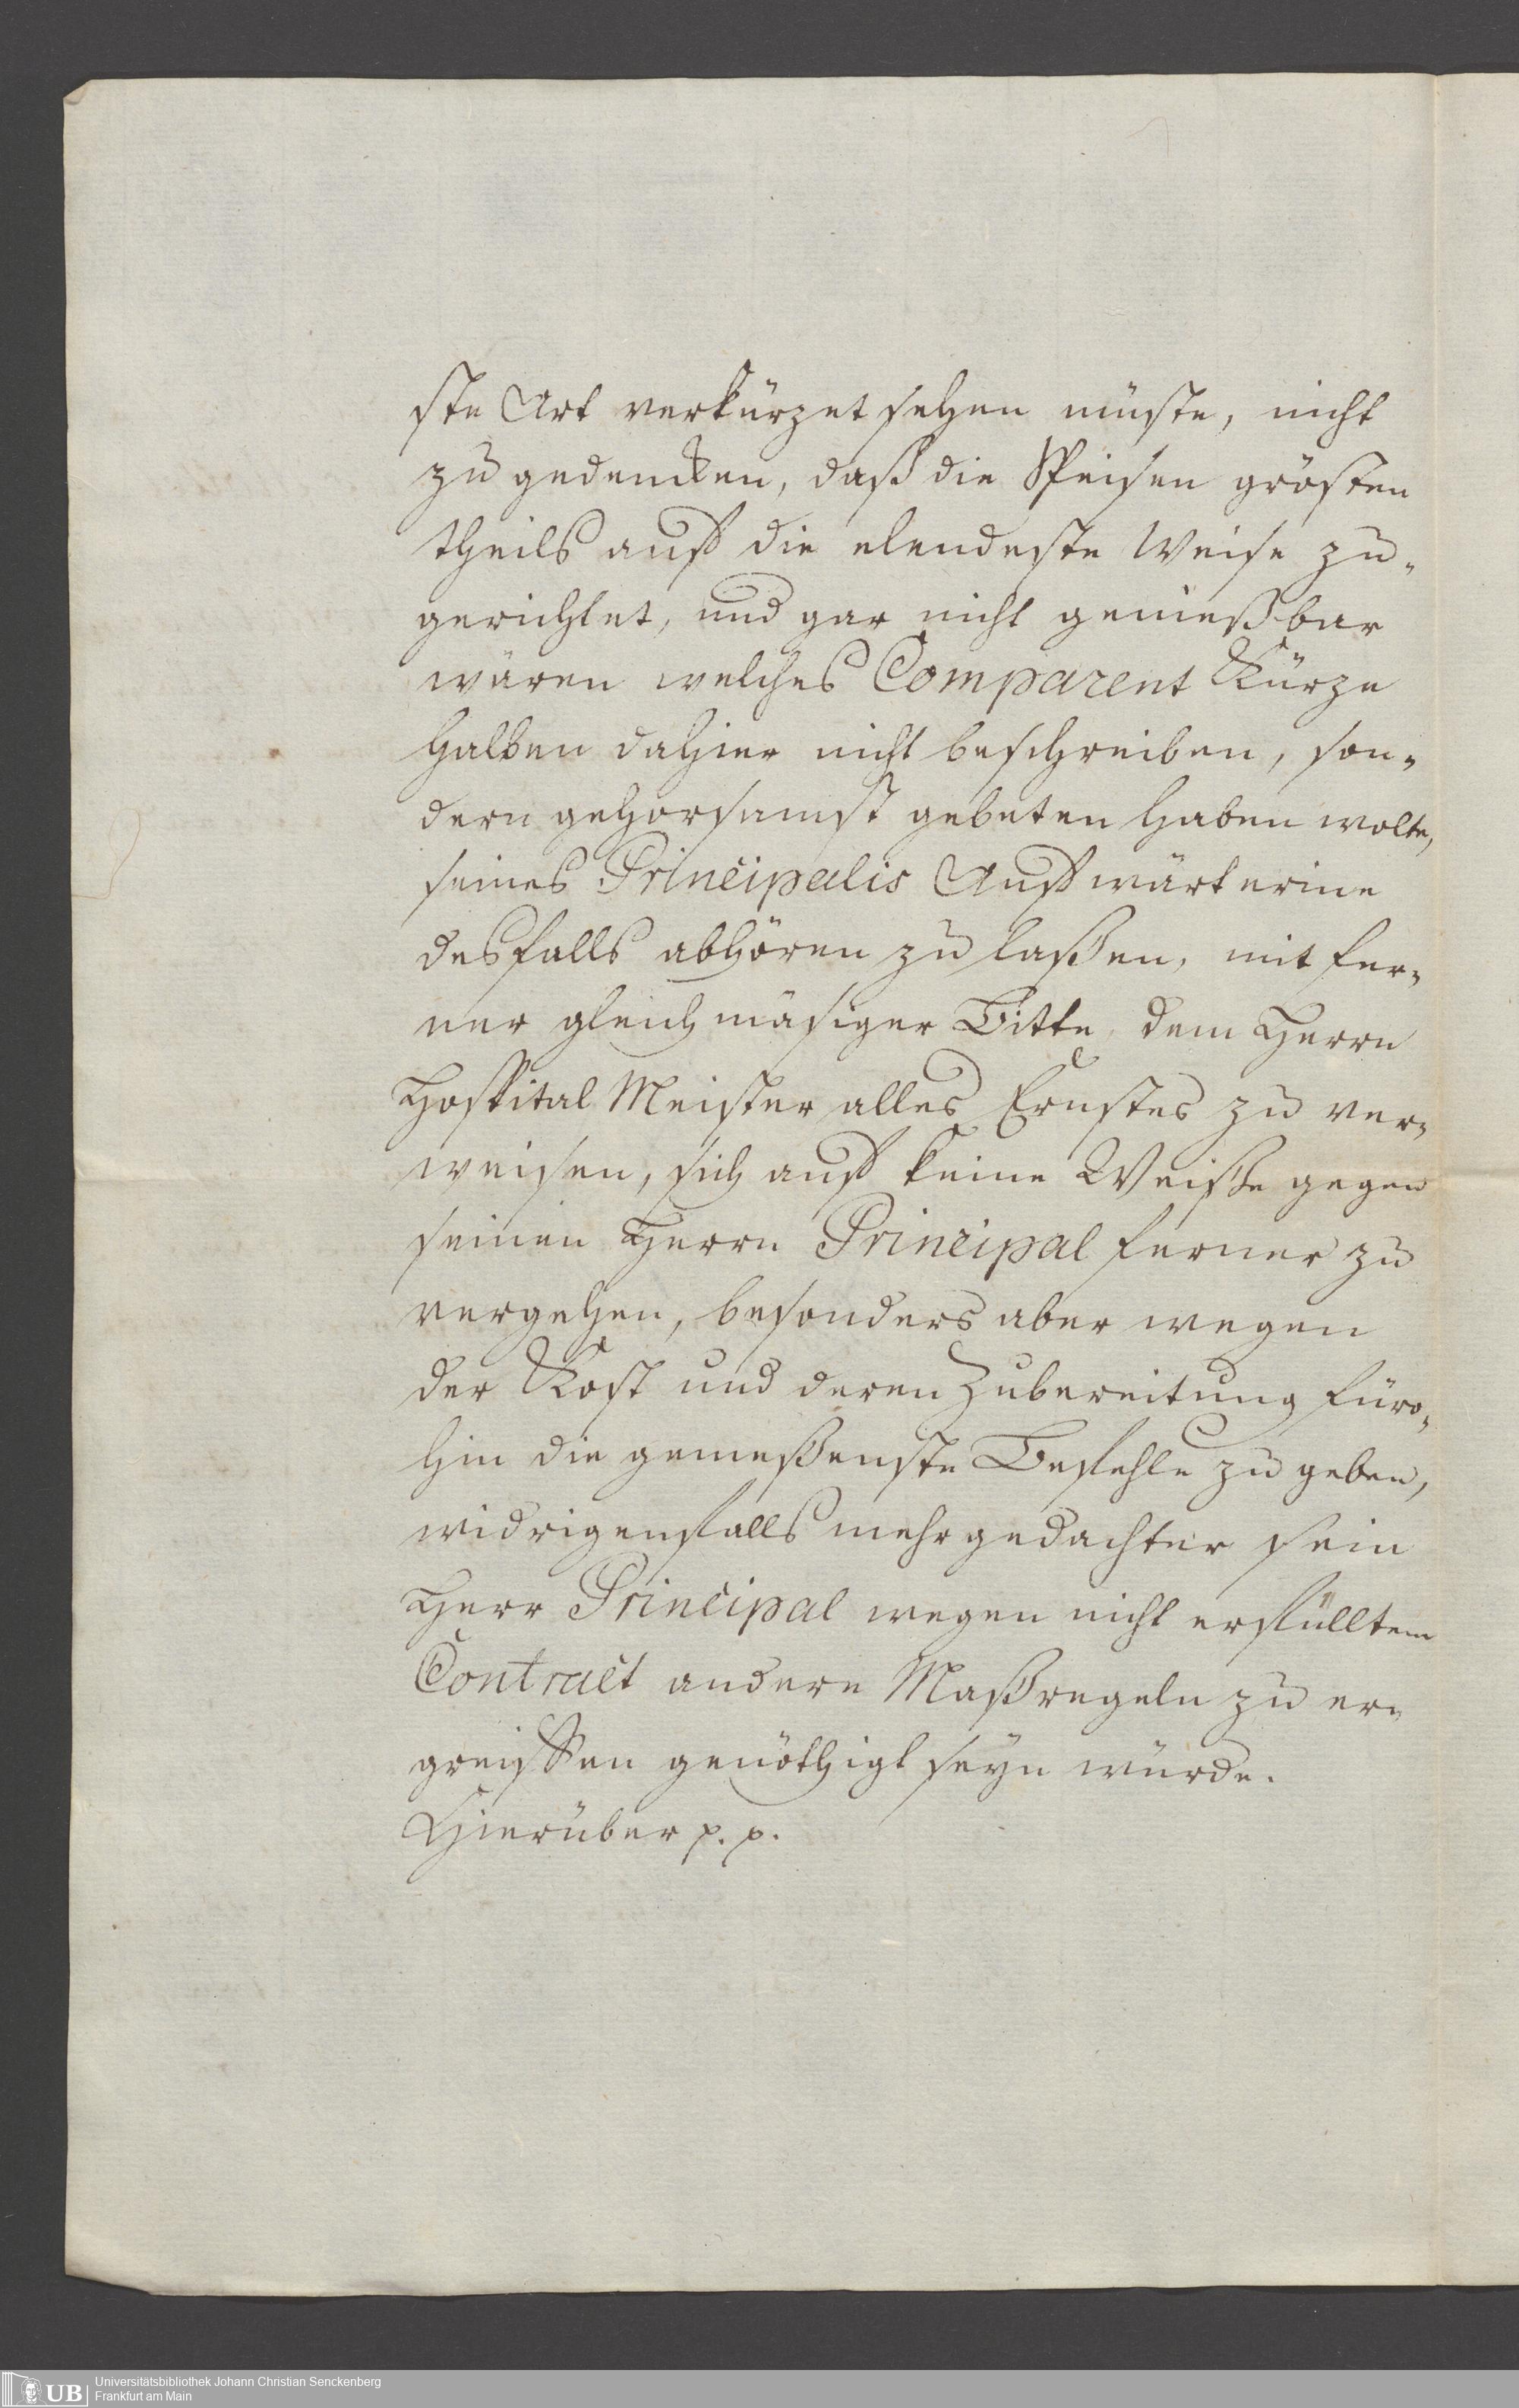 ste Art verkürzet sehen müste, nicht
zu gedencken, daß die Speisen grösten
theils auf die elendeste Weise zu-
gerichtet, und gar nicht genießbar
wären welches Comparent Kürze
halben dahier nicht beschreiben, son-
dern gehorsamst gebeten haben wolte,
seines Principalis Aufwärterine
desfalls abhören zu laßen, mit fer-
ner gleich mäsiger Bitte, dem Herrn
Hospital Meister alles Ernstes zu ver-
weisen, sich auf keine Weiße gegen
seinen Herrn Principal ferner zu
vergehen, besonders aber wegen
der Kost und deren Zubereitung füro-
hin die gemeßenste Befehle zu geben,
widrigenfalls mehrgedachter sein
Herr Principal wegen nicht erfülltem
Contract andere Maßregeln zu er-
greiffen genöthigt seyn würde.
Hierüber p. p.
UB
Universitätsbibliothek Johann Christian Senckenberg
Frankfurt am Main